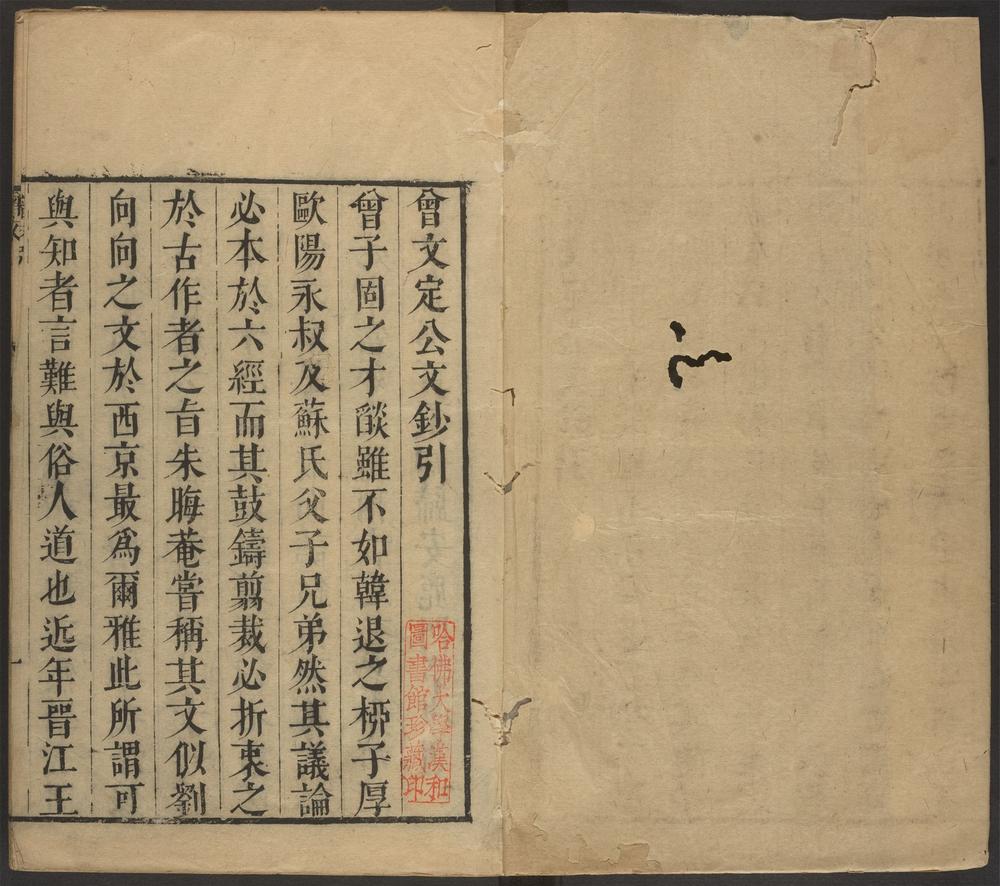 曾文定公文鈔引
曾子固之才燄雖不如韓退之桞子厚
歐陽永叔及蘇氏父子兄弟然其議論
必本於六經而其鼓鑄剪裁必折衷之
於古作者之旨朱晦菴嘗稱其文似劉
向向之文於西京最爲爾雅此所謂可
與知者言難與俗人道也近年晉江王
一
哈佛大學漢和
圖書館珍藏印